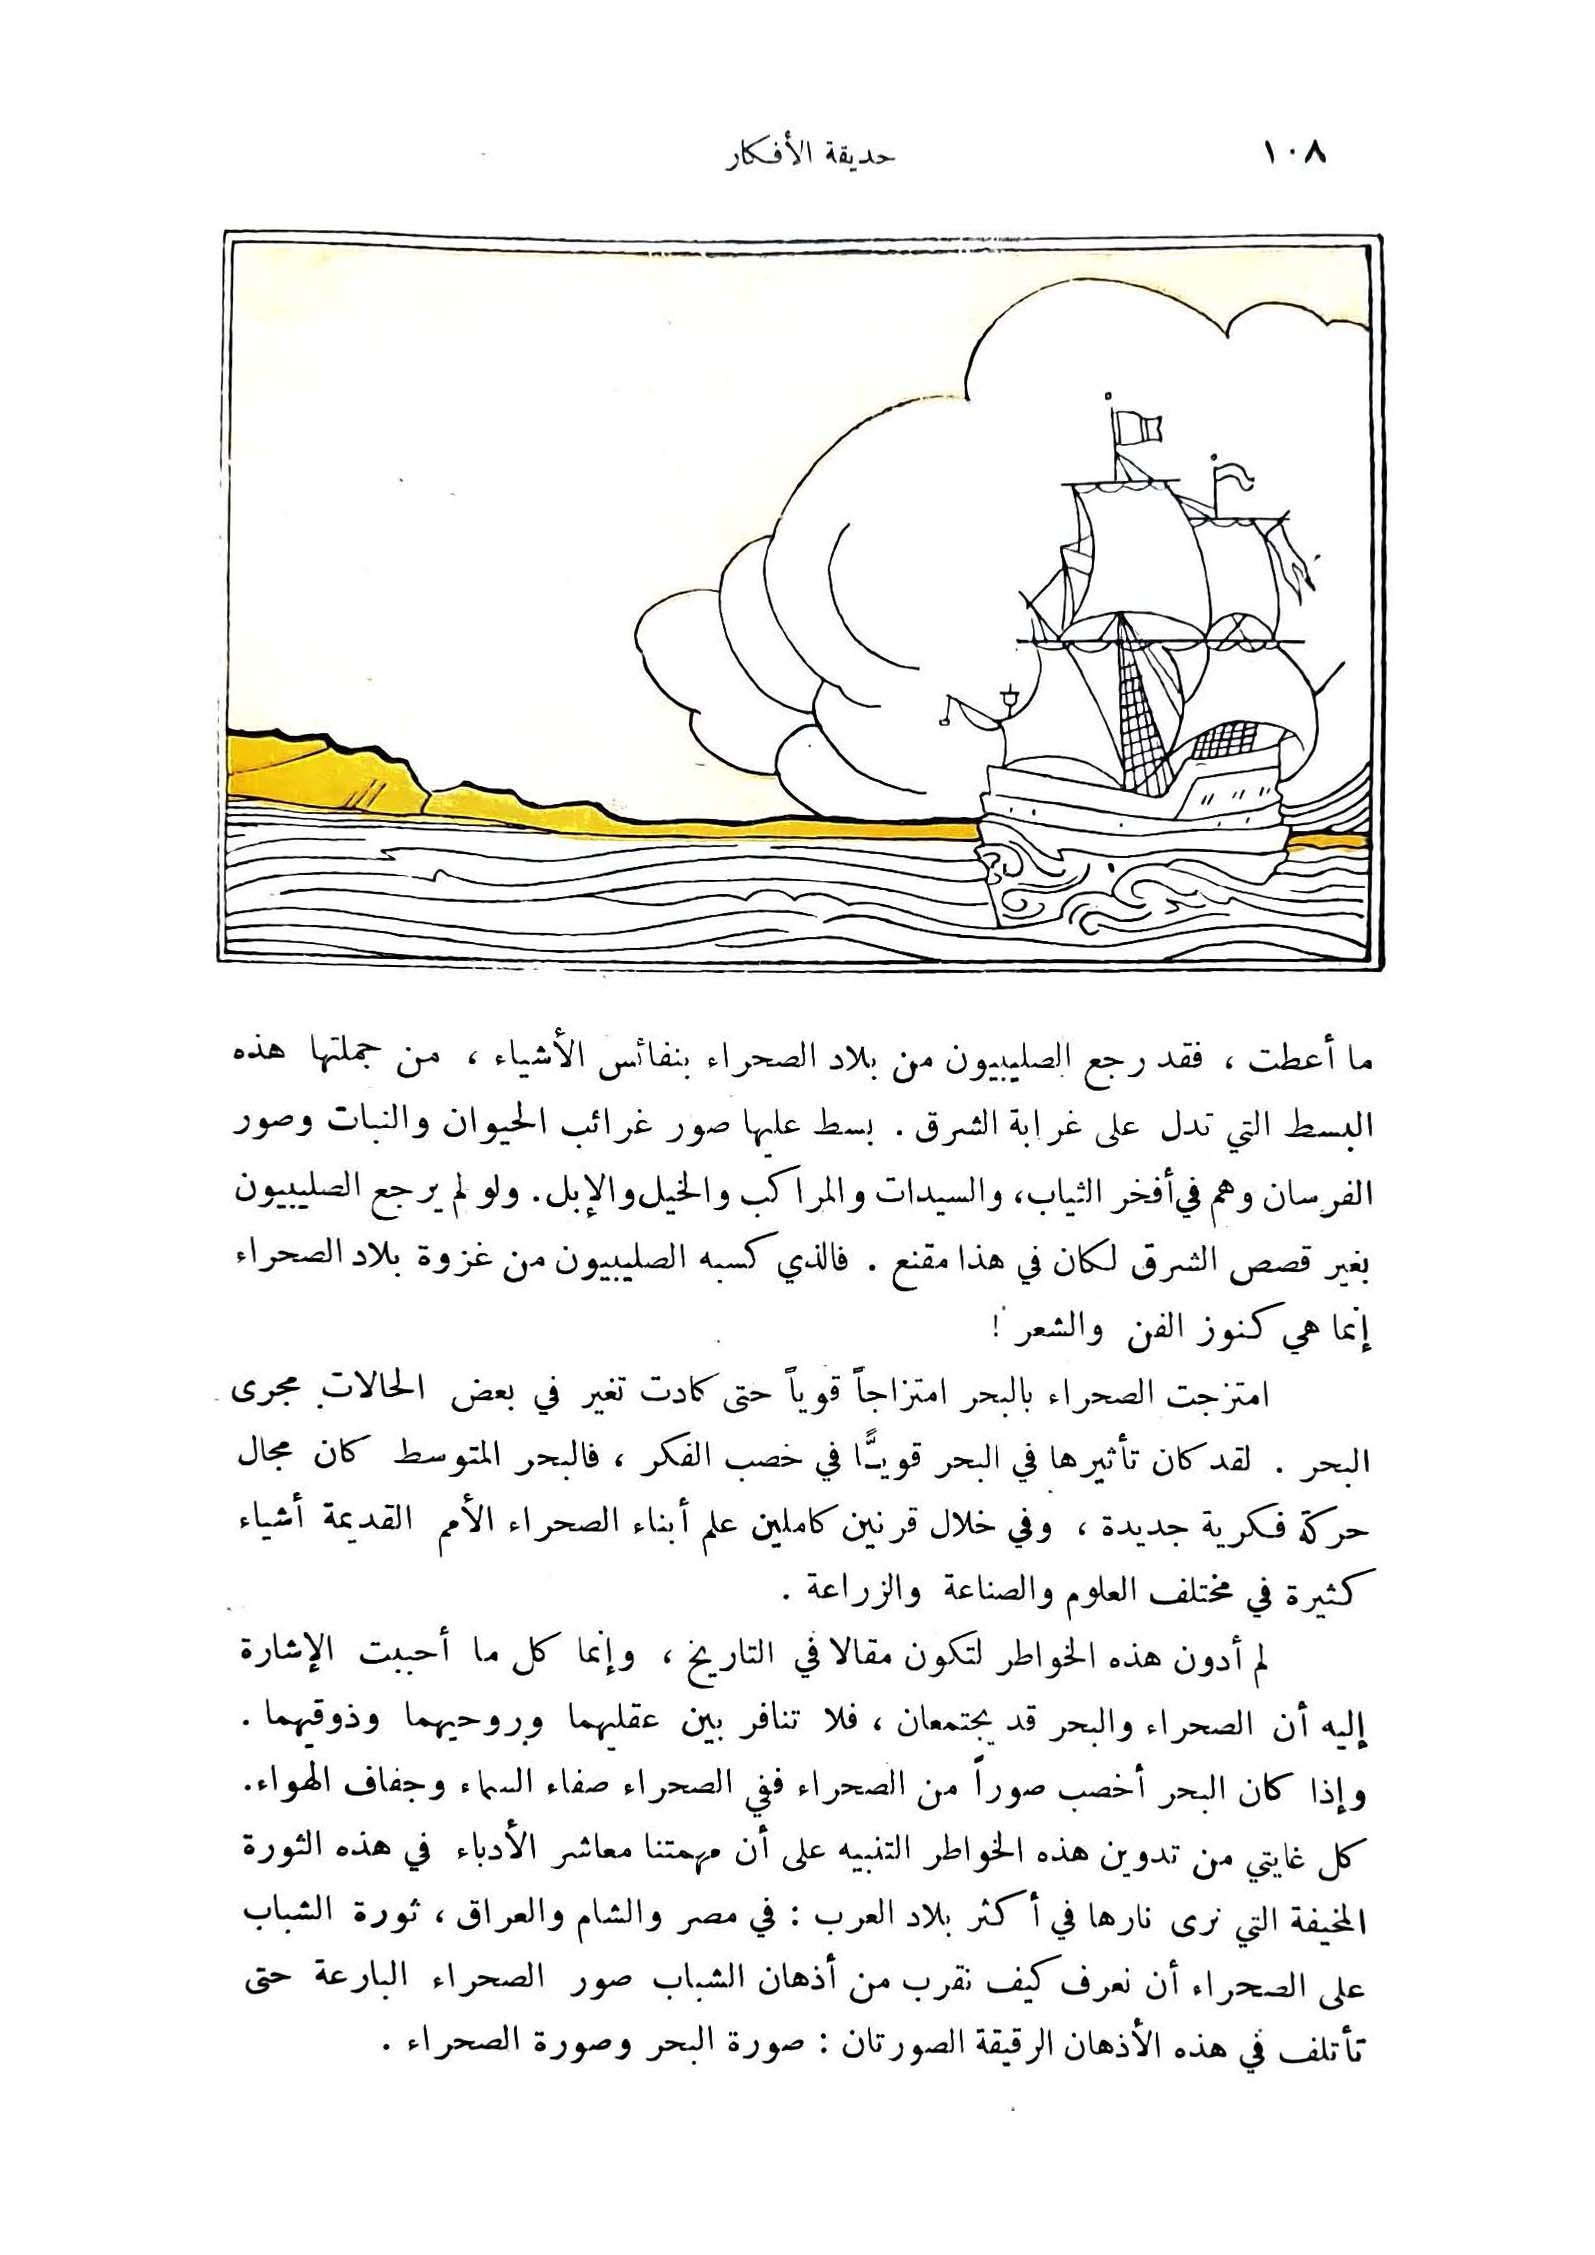 ١٠٨
حديقة الأفكار
ما أعطت ، فقد رجع الصليبيون من بلاد الصحراء بنفائس الأشياء ، من جملتها هذه
البسط التي تدل على غرابة الشرق . بسط عليها صور غرائب الحيوان والنبات وصور
الفرسان وهم في أفخر الثياب، والسيدات والمراكب والخيل والإبل. ولو لم يرجع الصليبيون
بغير قصص الشرق لكان في هذا مقنع . فالذي كسبه الصليبيون من غزوة بلاد الصحراء
إنما هي كنوز الفن والشعر !
امتزجت الصحراء بالبحر امتزاجاً قوياً حتى كادت تغير في بعض الحالات مجرى
البحر . لقد كان تأثيرها في البحر قويـًّا في خصب الفكر ، فالبحر المتوسط كان مجال
حركة فكرية جديدة ، وفي خلال قرنين كاملين علم أبناء الصحراء الأمم القديمة أشياء
كثيرة في مختلف العلوم والصناعة والزراعة .
لم أدون هذه الخواطر لتكون مقالا في التاريخ ، وإنما كل ما أحببت الإشارة
إليه أن الصحراء والبحر قد يجتمعان ، فلا تنافر بين عقليهما وروحيهما وذوقيهما .
وإذا كان البحر أخصب صوراً من الصحراء ففي الصحراء صفاء السماء وجفاف الهواء.
كل غايتي من تدوين هذه الخواطر التنبيه على أن مهمتنا معاشر الأدباء في هذه الثورة
المخيفة التي نرى نارها في أكثر بلاد العرب : في مصر والشام والعراق ، ثورة الشباب
على الصحراء أن نعرف كيف نقرب من أذهان الشباب صور الصحراء البارعة حتى
تأتلف في هذه الأذهان الرقيقة الصورتان : صورة البحر وصورة الصحراء .